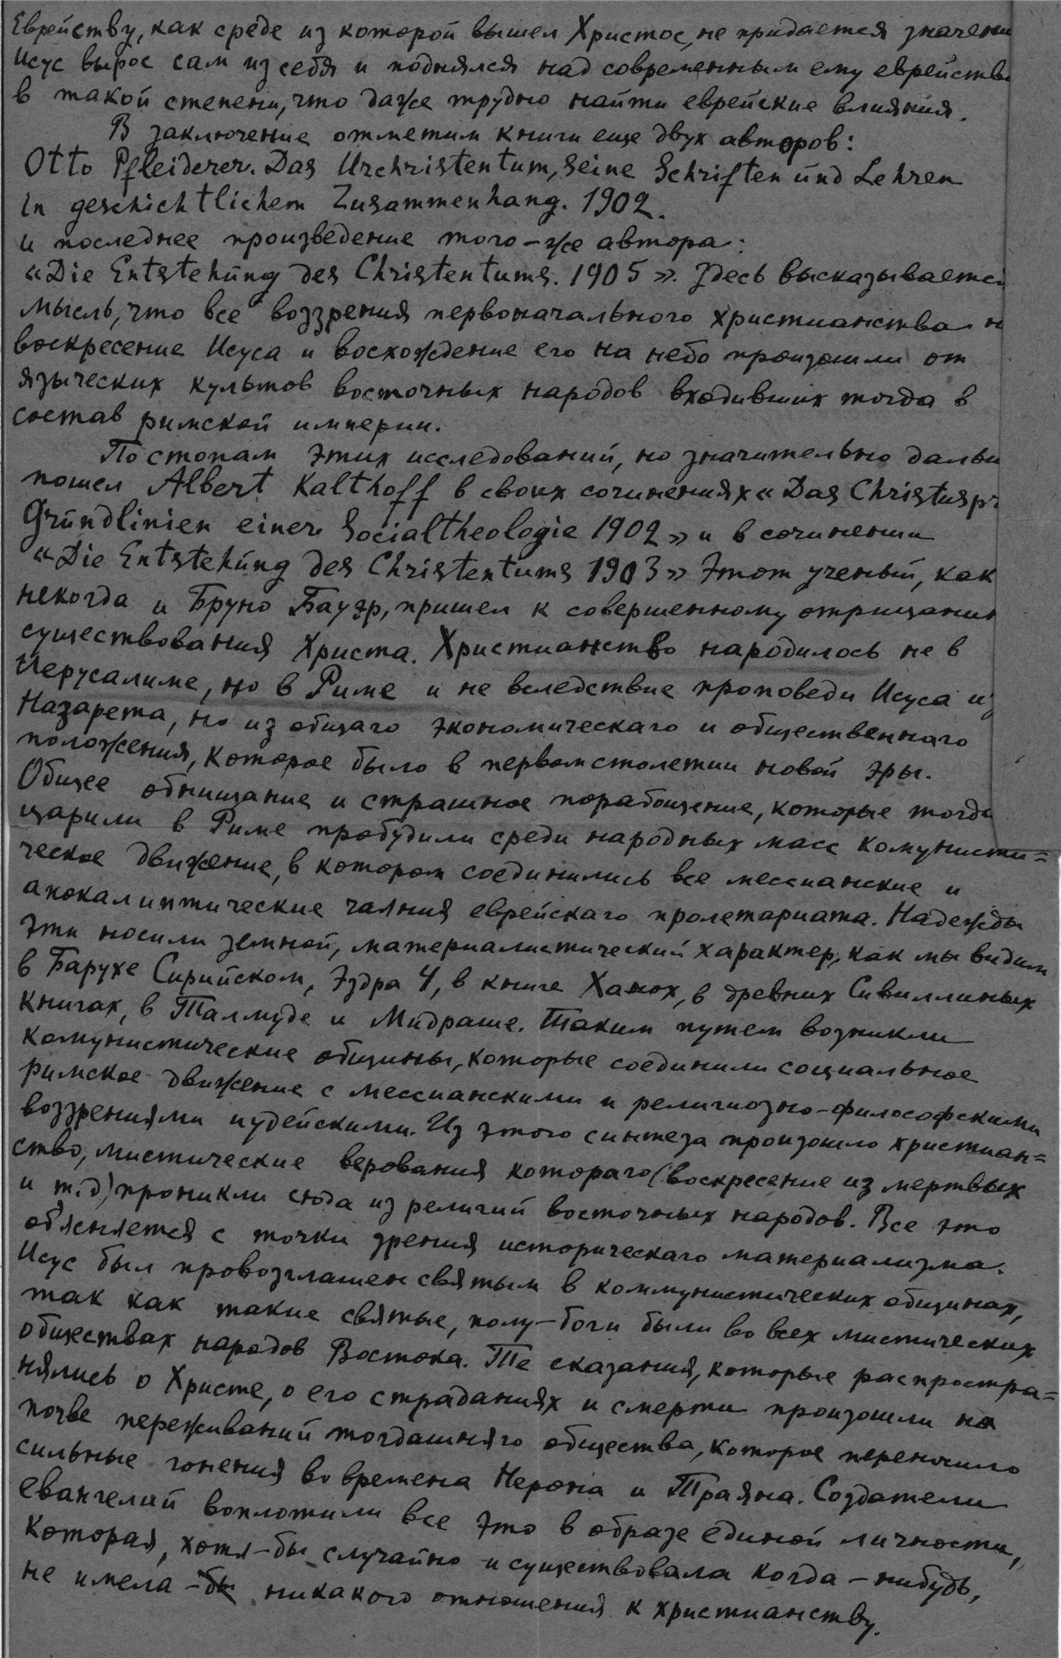 Еврейству, как среде из которой вышел Христос, не придается значени
Исус вырос сам из себя и поднялся над современным ему еврейство
в такой степени, что даже трудно найти еврейские влияния.
В заключение отметим книги еще двух авторов:
Otto Pfleiderer. Das Urchristentum, seine Schriften ünd Lehren
in geschichtlichem Zusammenhang. 1902.
и последнее произведение того-же автора:
«Die Entstehüng des Christentums. 1905». Здесь высказывается
мысль, что все воззрения первоначального христианства н
воскресение Исуса и восхождение его на небо произошли от
языческих культов восточных народов входивших тогда в
состав римской империи.
По стопам этих исследований, но значительно дальш
пошел Albert Kalthoff в своих сочинениях «Das Christuspr
Gründlinien einer Socialtheologie 1902» и в сочинении
«Die Entstehüng des Christentums 1903» Этот ученый, как
некогда и Бруно Бауэр, пришел к совершенному отрицани
существования Христа. Христианство народилось не в
Иерусалиме, но в Риме и не вследствие проповеди Исуса из
Назарета, но из общаго экономическаго и общественнаго
положения, которое было в первом столетии новой эры.
Общее обнищание и страшное порабощение, которые тогда
царили в Риме пробудили среди народных масс комунисти=
ческое движение, в котором соединились все мессианские и
апокалиптические чаяния еврейскаго пролетариата. Надежды
эти носили земной, материалистический характер, как мы видим
в Барухе Сирийском, Эздра 4, в книге Ханох, в древних Сивиллиных
книгах, в Талмуде и Мидраше. Таким путем возникли
комунистические общины, которые соединили социальное
римское движение с мессианскими и религиозно-философскими
воззрениями иудейскими. Из этого синтеза произошло христиан=
ство, мистические верования котораго (воскресение из мертвых
и т.д) проникли сюда из религий восточных народов. Все это
об'ясняется с точки зрения историческаго материализма.
Исус был провозглашен святым в коммунистических общинах,
так как такие святые, полу-боги были во всех мистических
обществах народов Востока. Те сказания, которые распростра=
нялись о Христе, о его страданиях и смерти произошли на
почве переживаний тогдашняго общества, которое переносило
сильные гонения во времена Нерона и Траяна. Создатели
евангелий воплотили все это в образе единой личности,
которая, хотя-бы случайно и существовала когда-нибудь,
не имела-бы никакого отношения к христианству.